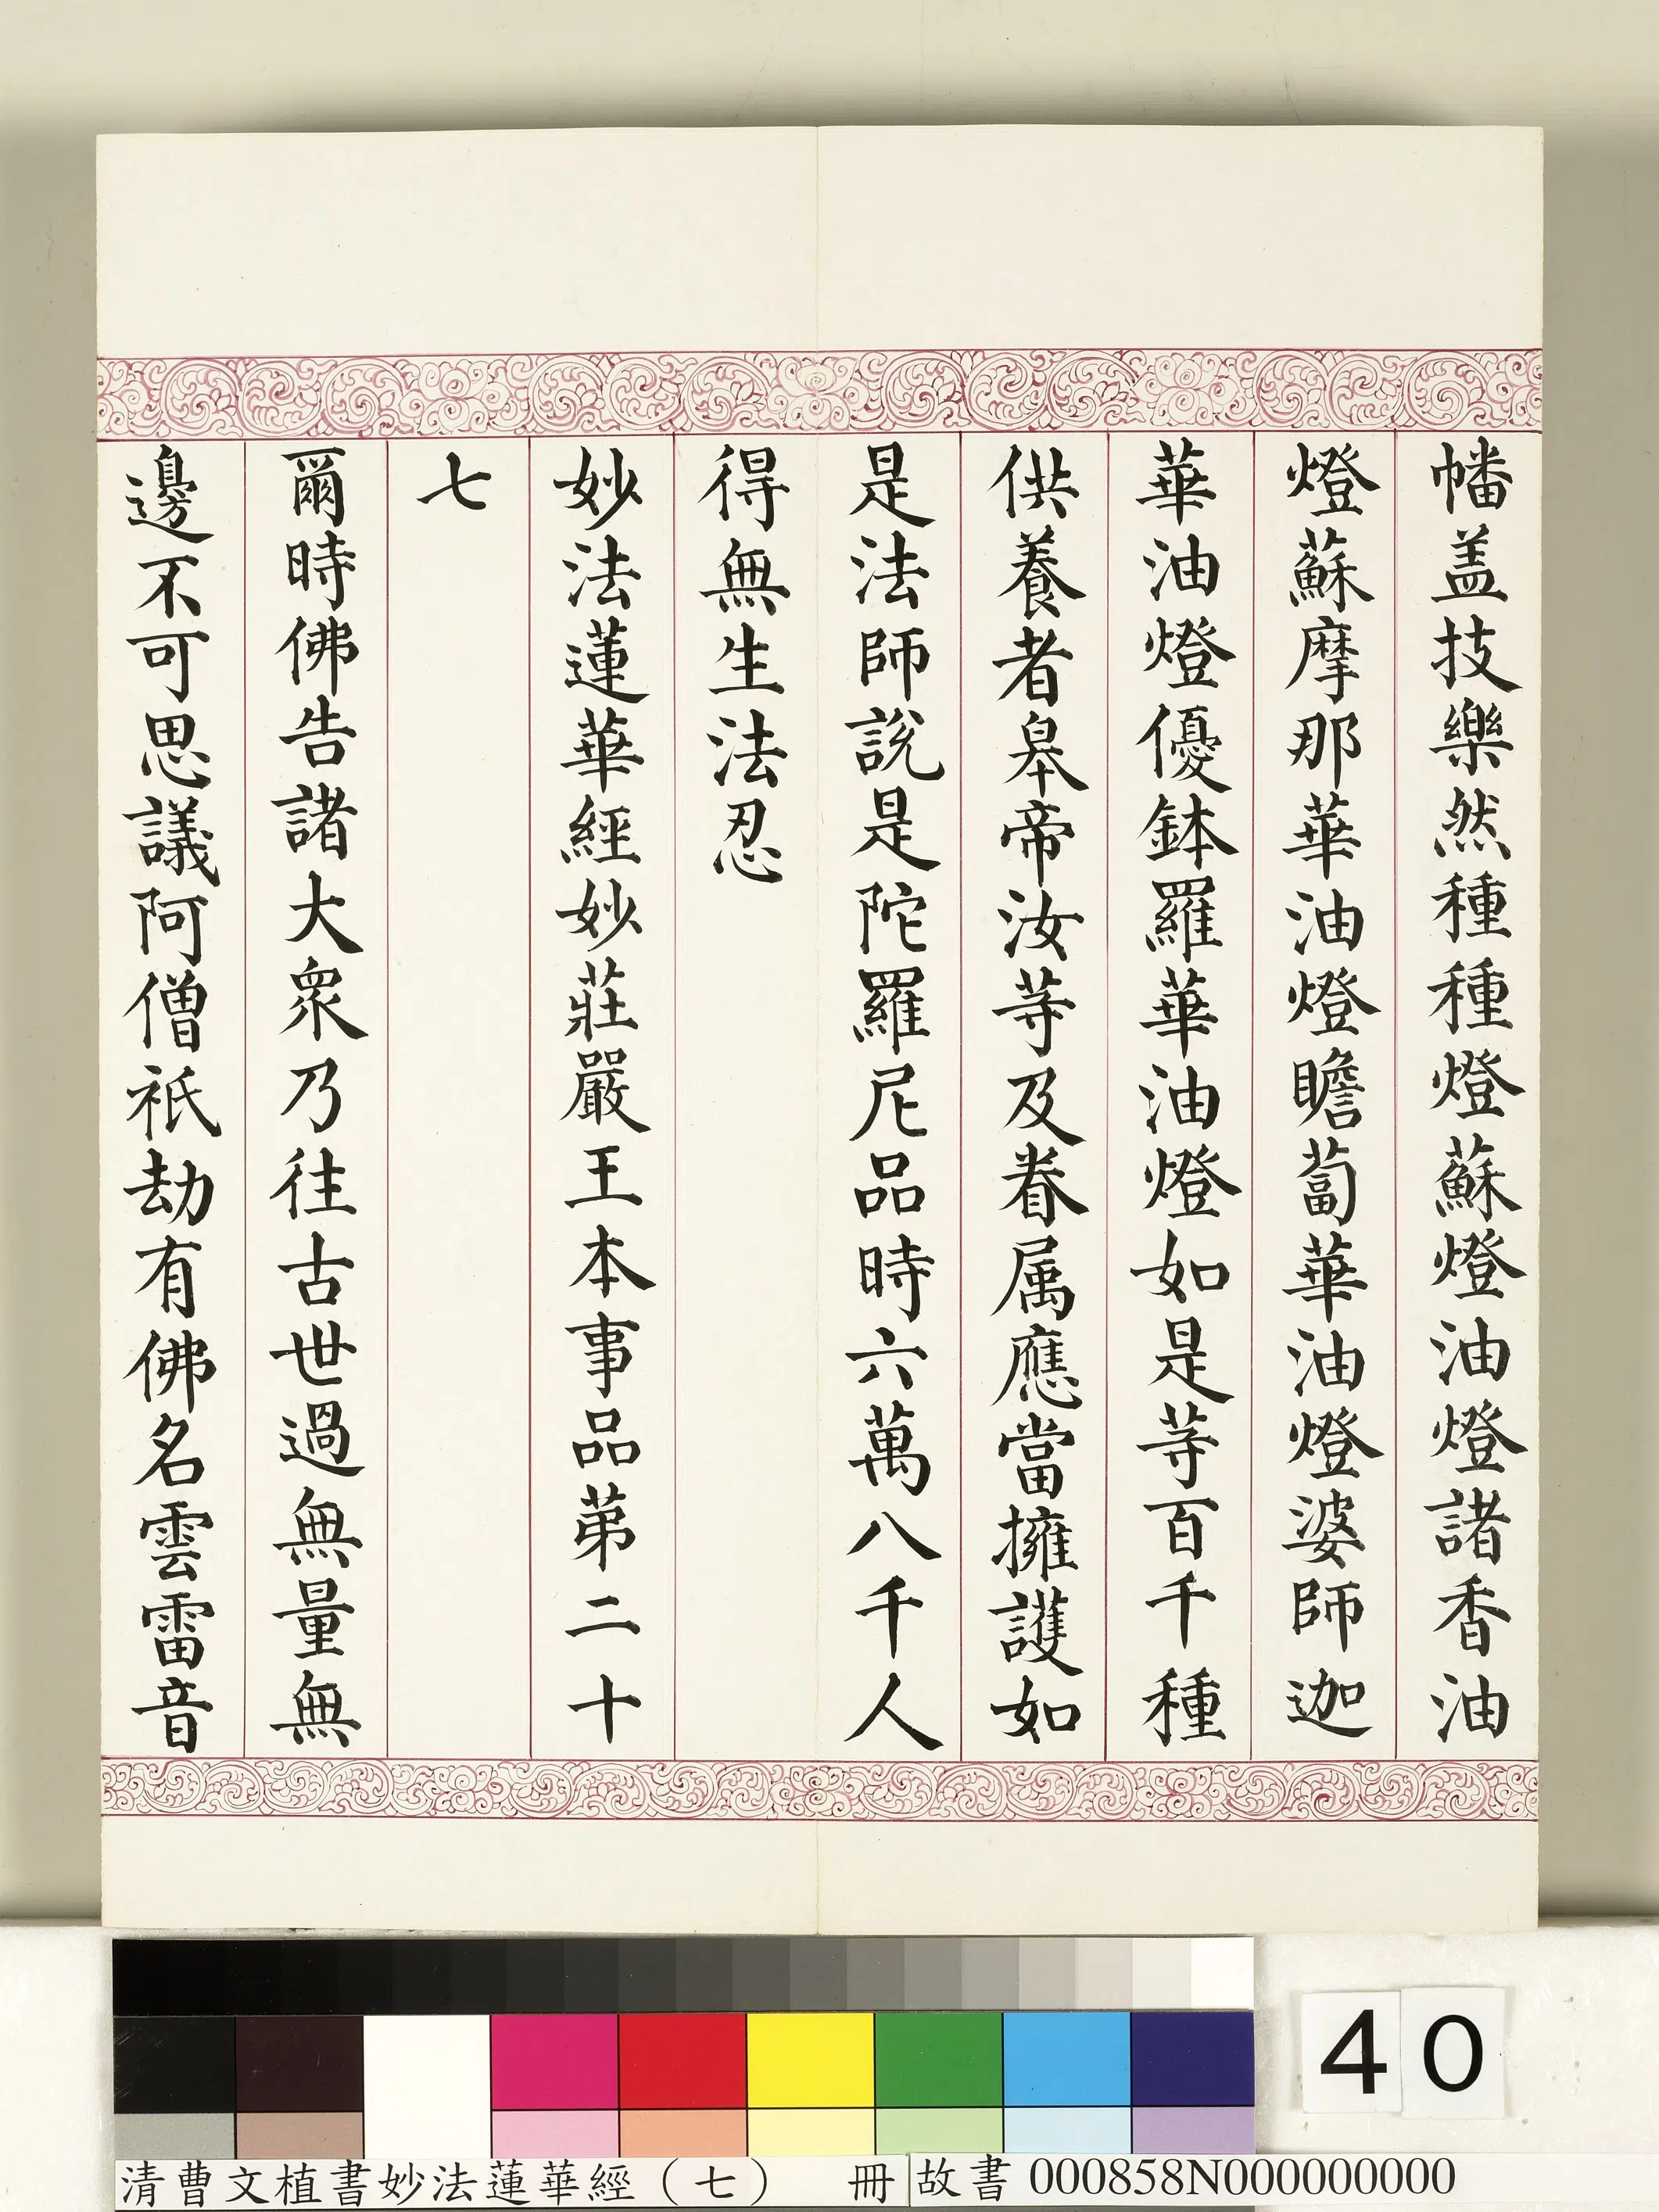 幡盖技樂然種種燈蘇燈油燈諸香油
燈蘇摩那華油燈瞻蔔華油燈婆師迦
華油燈優鉢羅華油燈如是等百千種
供養者皋帝汝等及眷属應當擁護如
是法師說是陀羅尼品時六萬八千人
得無生法忍
妙法蓮華經妙莊嚴王本事品苐二十
七
爾時佛告諸大眾乃往古世過無量無
邊不可思議阿僧祇劫有佛名雲雷音
40
清曹文植書妙法蓮華經（七） 冊 故書 000858N000000000